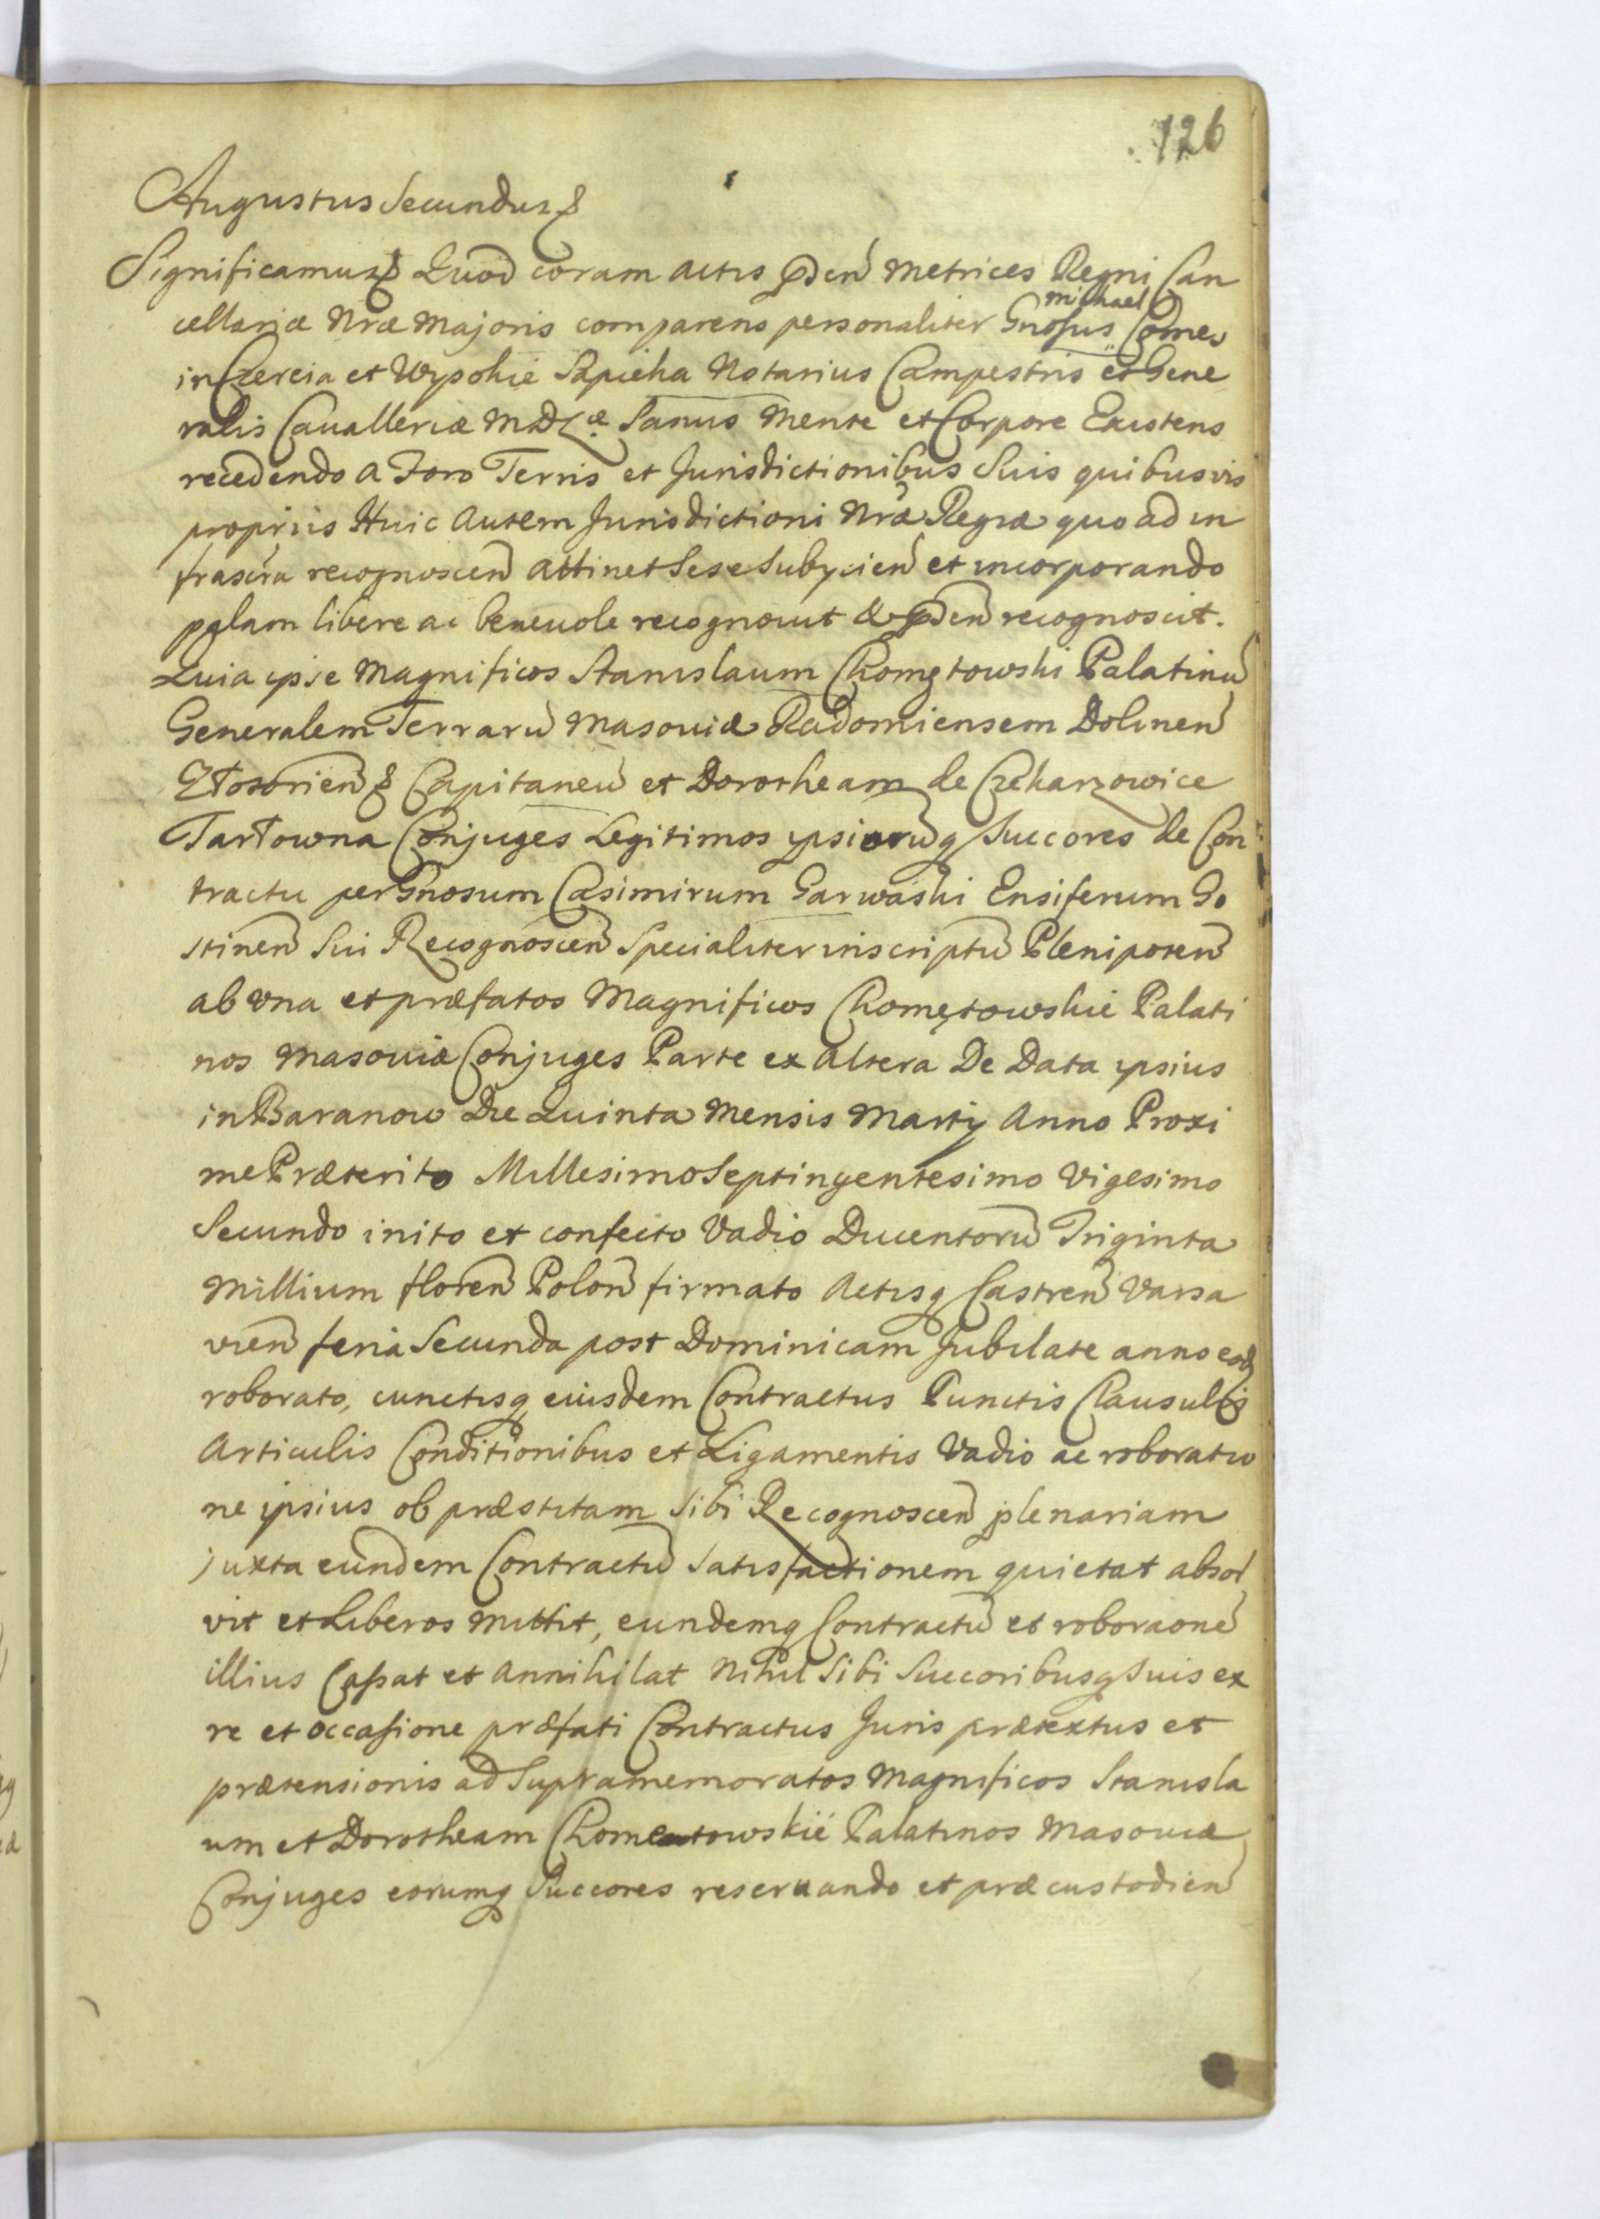 126
Augustus Secundus &
Significamus & Quod coram Actis pñ Metrices Regni Can
cellariæ Nræ Majoris comparens personaliter Gnosus Michael Comes
in Czereia et Wysokie Sapieha Notarius Campestris et Gene
ralis Cavalleriæ MDLæ Sanus Mente et Corpore Existens
recedendo a Foro Terris et Jurisdictionibus Suis quibusvis
propriis Huic Autem Jurisdictioni Nræ Regiæ quo ad in
frascra recognoscen̄ Attinet Sese Subycien̄ et incorporando
palam libere ac benevole recognovit & pñ recognoscit.
Quia ipse Magnificos Stanislaum Chomętowski Palatinū
Generalem Terrarū Masoviæ Radomiensem Dolinen̄
Ztotorien̄ & Capitaneū et Dorotheam de Czekarzowice
Tarłowna Conjuges Legitimos ipsiorūq Succores de Con
tractu per Gnosum Casimirum Garwaski Ensiferum Go
stinen̄ Sui Recognoscen̄ Specialiter inscriptū Plenipoten̄
ab una et præfatos Magnificos Chomętowskie Palati
nos Masoviæ Conjuges Parte ex Altera De Data ipsius
in Baranow Die Quinta Mensis Martÿ Anno Proxi
me Præterito Millesimo Septingentesimo Vigesimo
Secundo inito et confecto Vadio Ducentorū Triginta
Millium floren̄ Polon̄ firmato Actisq Castren̄ Varsa
vien̄ feria Secunda post Dominicam Jubilate anno eod
roborato, cunctisq eiusdem Contractus Punctis Clausulis
Articulis Conditionibus et Ligamentis Vadio ac roboratio
ne ipsius ob præstitam Sibi Recognoscen̄ plenariam
juxta eundem Contractū Satisfactionem quietat absol
vit et Liberos Mittit, eundemq Contractū et roboraonē
illius Cassat et Annihilat Nihil Sibi Succoribusq Suis ex
re et occasione præfati Contractus Juris prætextus et
prætensionis ad Supramemoratos Magnificos Stanisla
um et Dorotheam Chomentowskie Palatinos Masoviæ
Conjuges eorumq Succores reservando et præcustodien̄